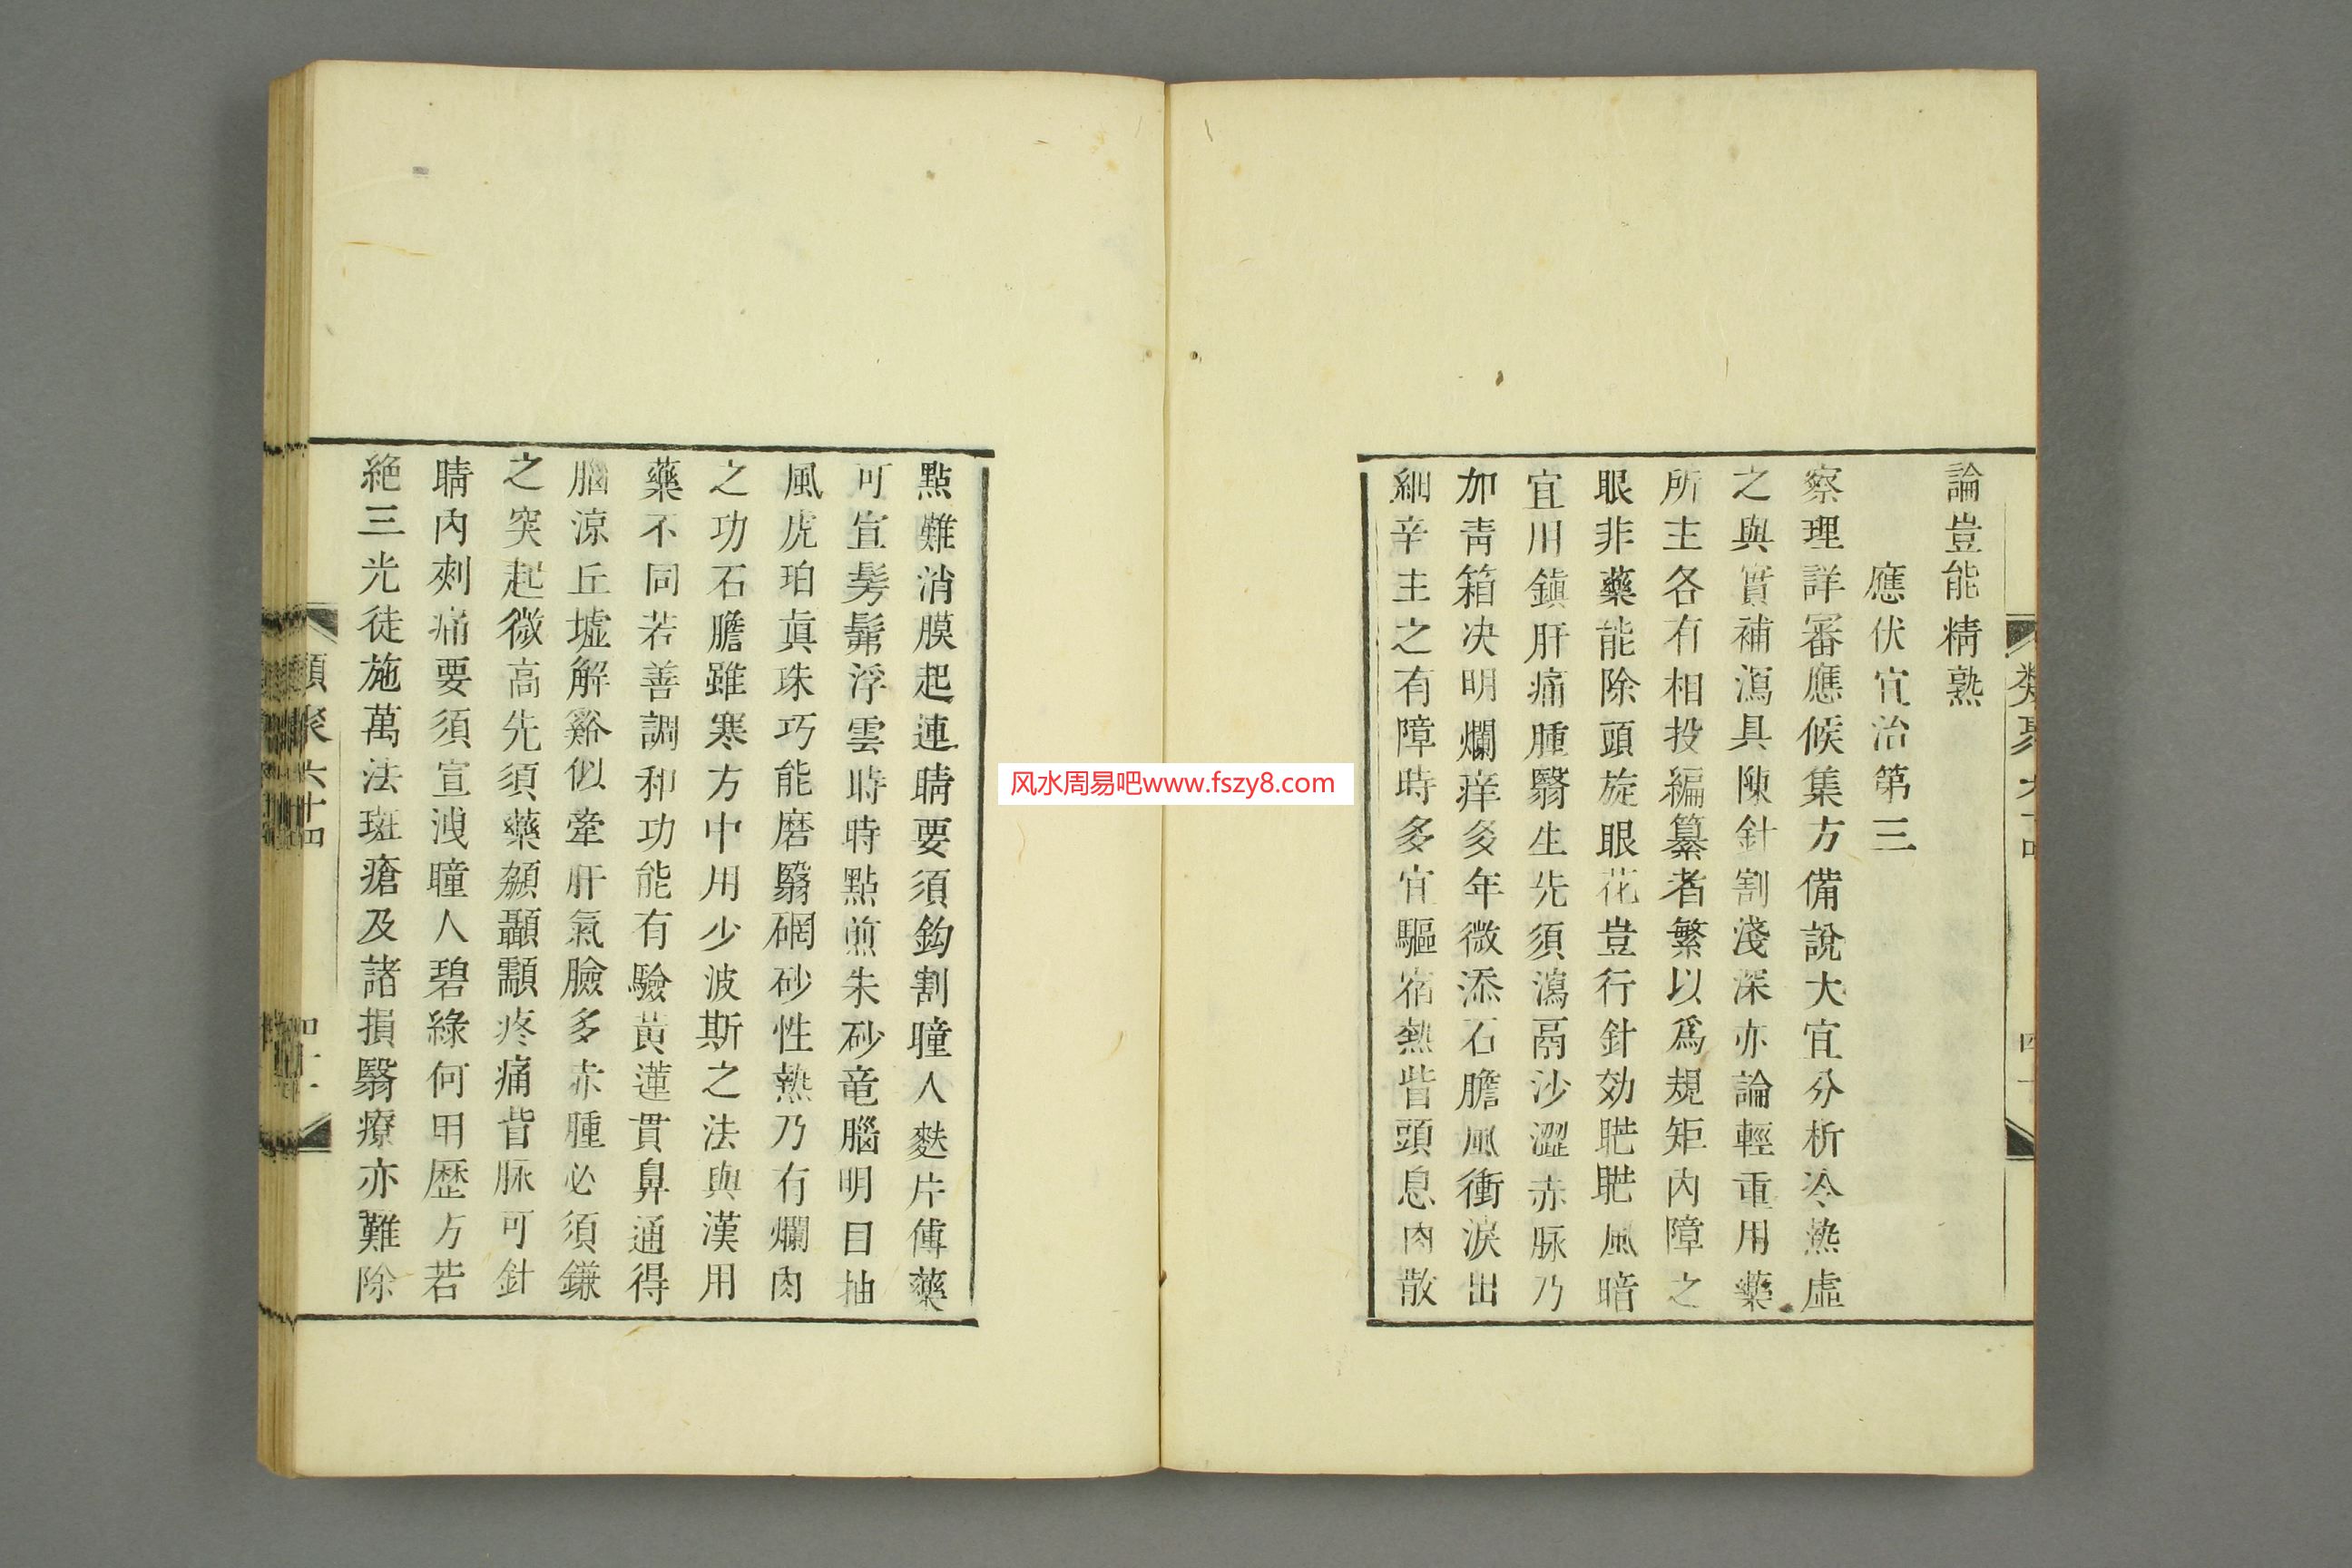 論豈能精熟
應伏宜治第三
察理詳審應候集方備說大宜分析冷熱虛
之與實補瀉具陳針割淺深亦論輕重用藥
所主各有相投編纂者繁以爲規矩内障之
眼非藥能除頭旋眼花豈行針効𥆨𥆨風暗
宜用鎮肝痛腫翳生先須瀉鬲沙澀赤脉乃
加青箱决明爛痒多年微添石膽風衝淚出
細辛主之有障時多宜驅宿熱眥頭息肉散
點難消膜起連睛要須鈎割瞳人麩片傅藥
可宜髣髴浮雲時時點煎朱砂竜腦明目抽
風虎珀眞珠巧能磨翳硇砂性熱乃有爛肉
之功石膽雖寒方中用少波斯之法與漢用
藥不同若善調和功能有驗黃蓮貫鼻通得
腦涼丘墟解谿似牽肝氣臉多赤腫必須鎌
之突起微高先須藥顙顳顬疼痛眥脉可針
睛内刺痛要須宣洩瞳人碧綠何用歷方若
絶三光徒施萬法斑瘡及諸損翳療亦難除
類聚六十四
四十一
风水周易吧www.fszy8.com